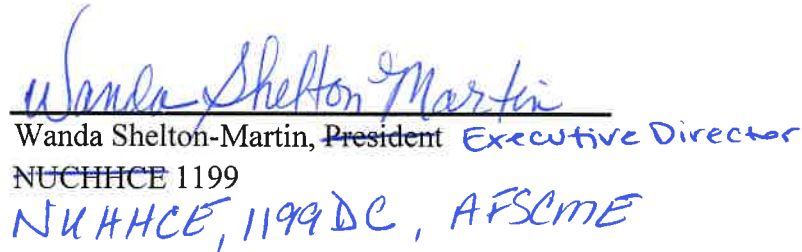 Wanda Shelton Martin
Wanda Shelton-Martin, President Executive Director
NUCHHCE 1199
NUHHCE, 1199DC, AFSCME